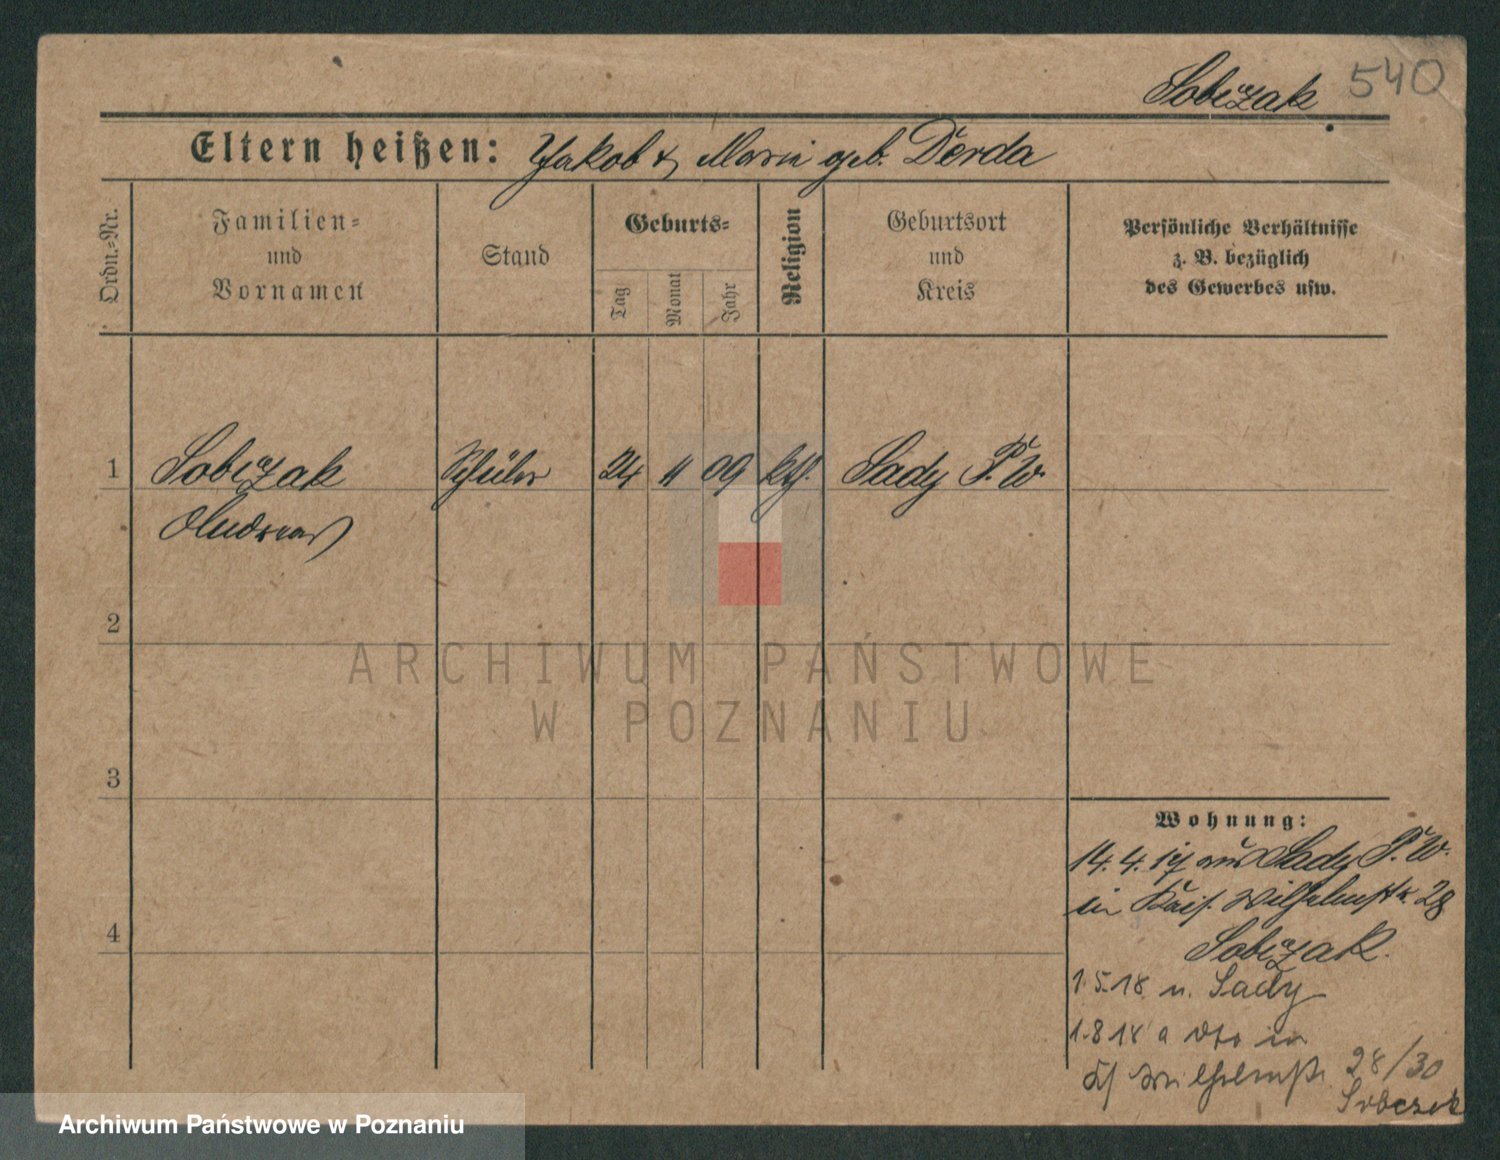 Sobczak 540
Eltern heißen: Jakob & Marie geb. Derda
Ordn.=Nr.
Familien=
und
Vornamen
Stand
Geburts=
Tag
Monat
Jahr
Religion
Geburtsort
und
Kreis
Persönliche Verhältnisse
z. B. bezüglich
des Gewerbes usw.
1 Sobczak Schüler 24 11 09 kth. Sady P. W.
Andreas
2
3
4
ARCHIWUM PAŃSTWOWE
W POZNANIU
Wohnung:
14. 4. 17 aus Sady P. W.
in Kais. Wilhelmstr. 28
Sobczak.
1.5.18 n. Sady
1.8.18 a dto in
Wilhelmstr. 28/30
Sobczak
Archiwum Państwowe w Poznaniu